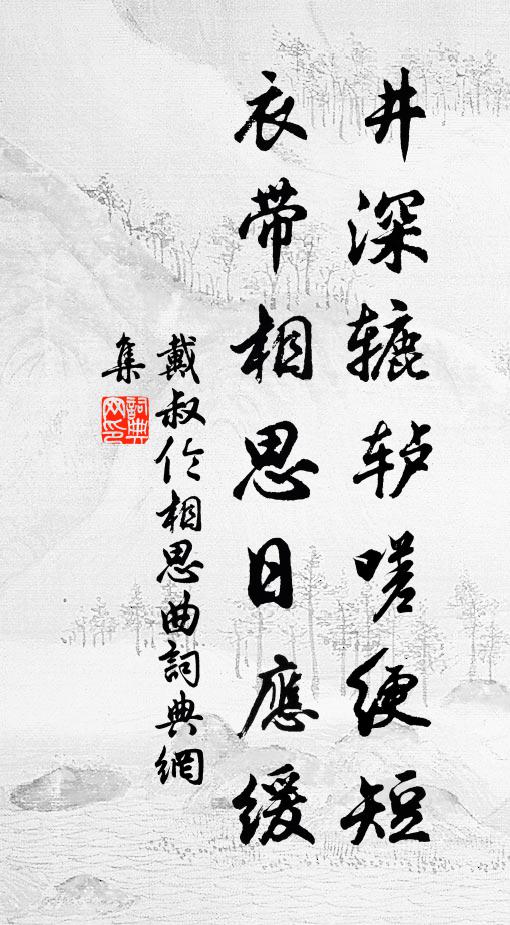 井深辘轳嗟绠短
衣带相思日應缓
戴叔伦相思曲詞典網
集
詞典网印